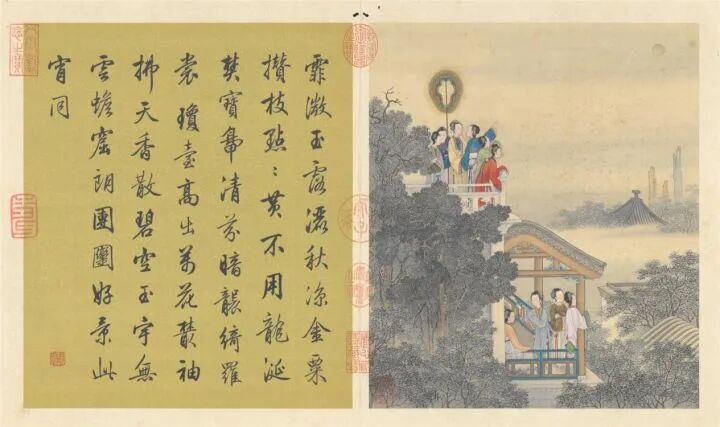 霏微玉露秋涼金粟
攢枝點點黃不用龍涎
寶鳧清芬暗襲綺羅
裳瓊臺高出萬花叢袖
拂天香散碧空玉宇無
雲蟾窟朗團圞好景此
宵同